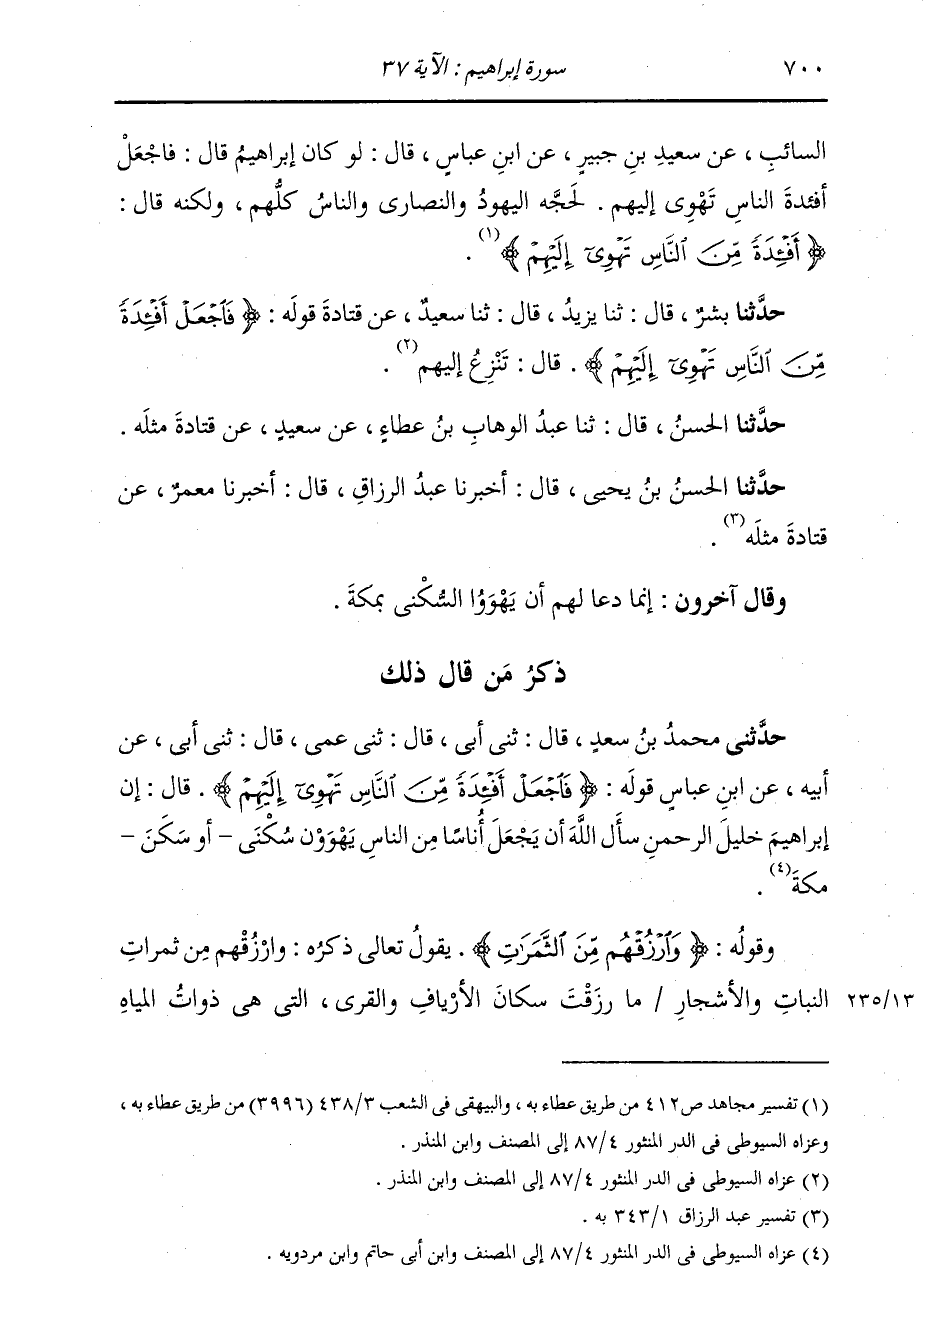 ٧٠٠ سورة إبراهيم : الآية ٣٧
السائبِ ، عن سعيدِ بنِ جبيرٍ ، عن ابنِ عباسٍ ، قال : لو كان إبراهيمُ قال : فاجْعَلْ
أفئدةَ الناسِ تَهْوِى إليهم . لَحجَّه اليهودُ والنصارى والناسُ كلُّهم ، ولكنه قال :
﴿ أَفْـِٔدَةً مِّنَ ٱلنَّاسِ تَهْوِىٓ إِلَيْهِمْ ﴾(١) .
حدَّثنا بشرٌ ، قال : ثنا يزيدُ ، قال : ثنا سعيدٌ ، عن قتادةَ قولَه : ﴿ فَٱجْعَلْ أَفْـِٔدَةً
مِّنَ ٱلنَّاسِ تَهْوِىٓ إِلَيْهِمْ ﴾ . قال : تَنْزِعُ إليهم(٢) .
حدَّثنا الحسنُ ، قال : ثنا عبدُ الوهابِ بنُ عطاءٍ ، عن سعيدٍ ، عن قتادةَ مثلَه .
حدَّثنا الحسنُ بنُ يحيى ، قال : أخبرنا عبدُ الرزاقِ ، قال : أخبرنا معمرٌ ، عن
قتادةَ مثلَه(٣) .
وقال آخرون : إنما دعا لهم أن يَهْوَوُا السُّكْنى بمكةَ .
ذكرُ مَن قال ذلك
حدَّثنى محمدُ بنُ سعدٍ ، قال : ثنى أبى ، قال : ثنى عمى ، قال : ثنى أبى ، عن
أبيه ، عن ابنِ عباسٍ قولَه : ﴿ فَٱجْعَلْ أَفْـِٔدَةً مِّنَ ٱلنَّاسِ تَهْوِىٓ إِلَيْهِمْ ﴾ . قال : إن
إبراهيمَ خليلَ الرحمنِ سأَل اللَّهَ أن يَجْعَلَ أُناسًا مِن الناسِ يَهْوَوْن سُكْنَى - أو سَكَنَ -
مكةَ(٤) .
وقولُه : ﴿ وَٱرْزُقْهُم مِّنَ ٱلثَّمَرَٰتِ ﴾ . يقولُ تعالى ذكرُه : وارْزُقْهم مِن ثمراتِ
٢٣٥/١٣ النباتِ والأشجارِ / ما رزَقْتَ سكانَ الأرْيافِ والقرى ، التى هى ذواتُ المياهِ
(١) تفسير مجاهد ص٤١٢ من طريق عطاء به ، والبيهقى فى الشعب ٤٣٨/٣ (٣٩٩٦) من طريق عطاء به ،
وعزاه السيوطى فى الدر المنثور ٨٧/٤ إلى المصنف وابن المنذر .
(٢) عزاه السيوطى فى الدر المنثور ٨٧/٤ إلى المصنف وابن المنذر .
(٣) تفسير عبد الرزاق ٣٤٣/١ به .
(٤) عزاه السيوطى فى الدر المنثور ٨٧/٤ إلى المصنف وابن أبى حاتم وابن مردويه .